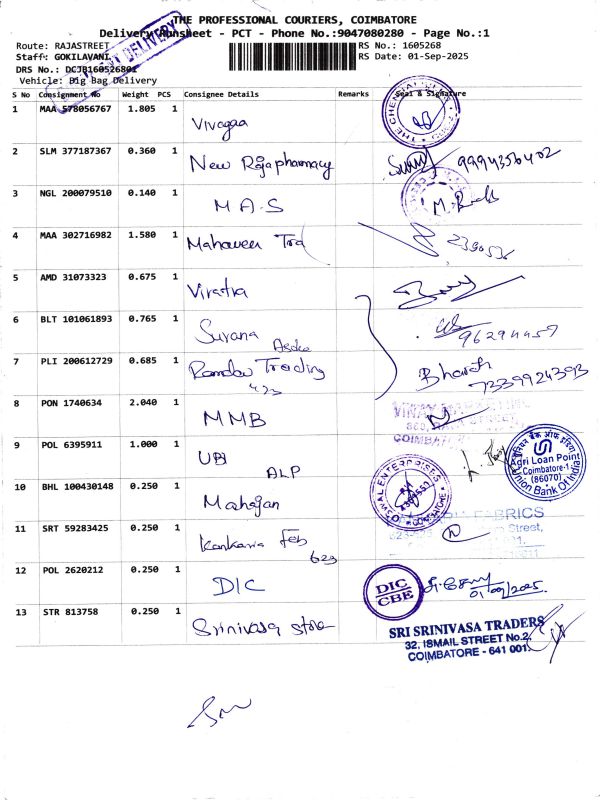 THE PROFESSIONAL COURIERS, COIMBATORE
Delivery Runsheet - PCT - Phone No.:9047080280 - Page No.:1
Route: RAJASTREET RS No.: 1605268
Staff: GOKILAVANI RS Date: 01-Sep-2025
DRS No.: DCJB160526801
Vehicle: Big Bag Delivery
DELIVERY
S No Consignment No Weight PCS Consignee Details Remarks Seal & Signature
1 MAA 578056767 1.805 1 Vivagaa
2 SLM 377187367 0.360 1 New Raja pharmacy 9994356402
3 NGL 200079510 0.140 1 M A.S
4 MAA 302716982 1.580 1 Mahaveer Tra
5 AMD 31073323 0.675 1 Virastra
6 BLT 101061893 0.765 1 Surana Asoka 96294457
7 PLI 200612729 0.685 1 Ramdev Trading Bharath
423 7339924393
8 PON 1740634 2.040 1 MMB
COIMBATOR
9 POL 6395911 1.000 1 UBI ALP
Agri Loan Point
Coimbatore-1
(86070)
Union Bank Of India
10 BHL 100430148 0.250 1 Mahajan
ENTERPRISES
COIMBATORE
11 SRT 59283425 0.250 1 Kankaria Feb
623
FABRICS
Street,
12 POL 2620212 0.250 1 DIC
DIC
CBE
01/09/2025
13 STR 813758 0.250 1 Srinivasa store
SRI SRINIVASA TRADERS
32, ISMAIL STREET No.2
COIMBATORE - 641 001.